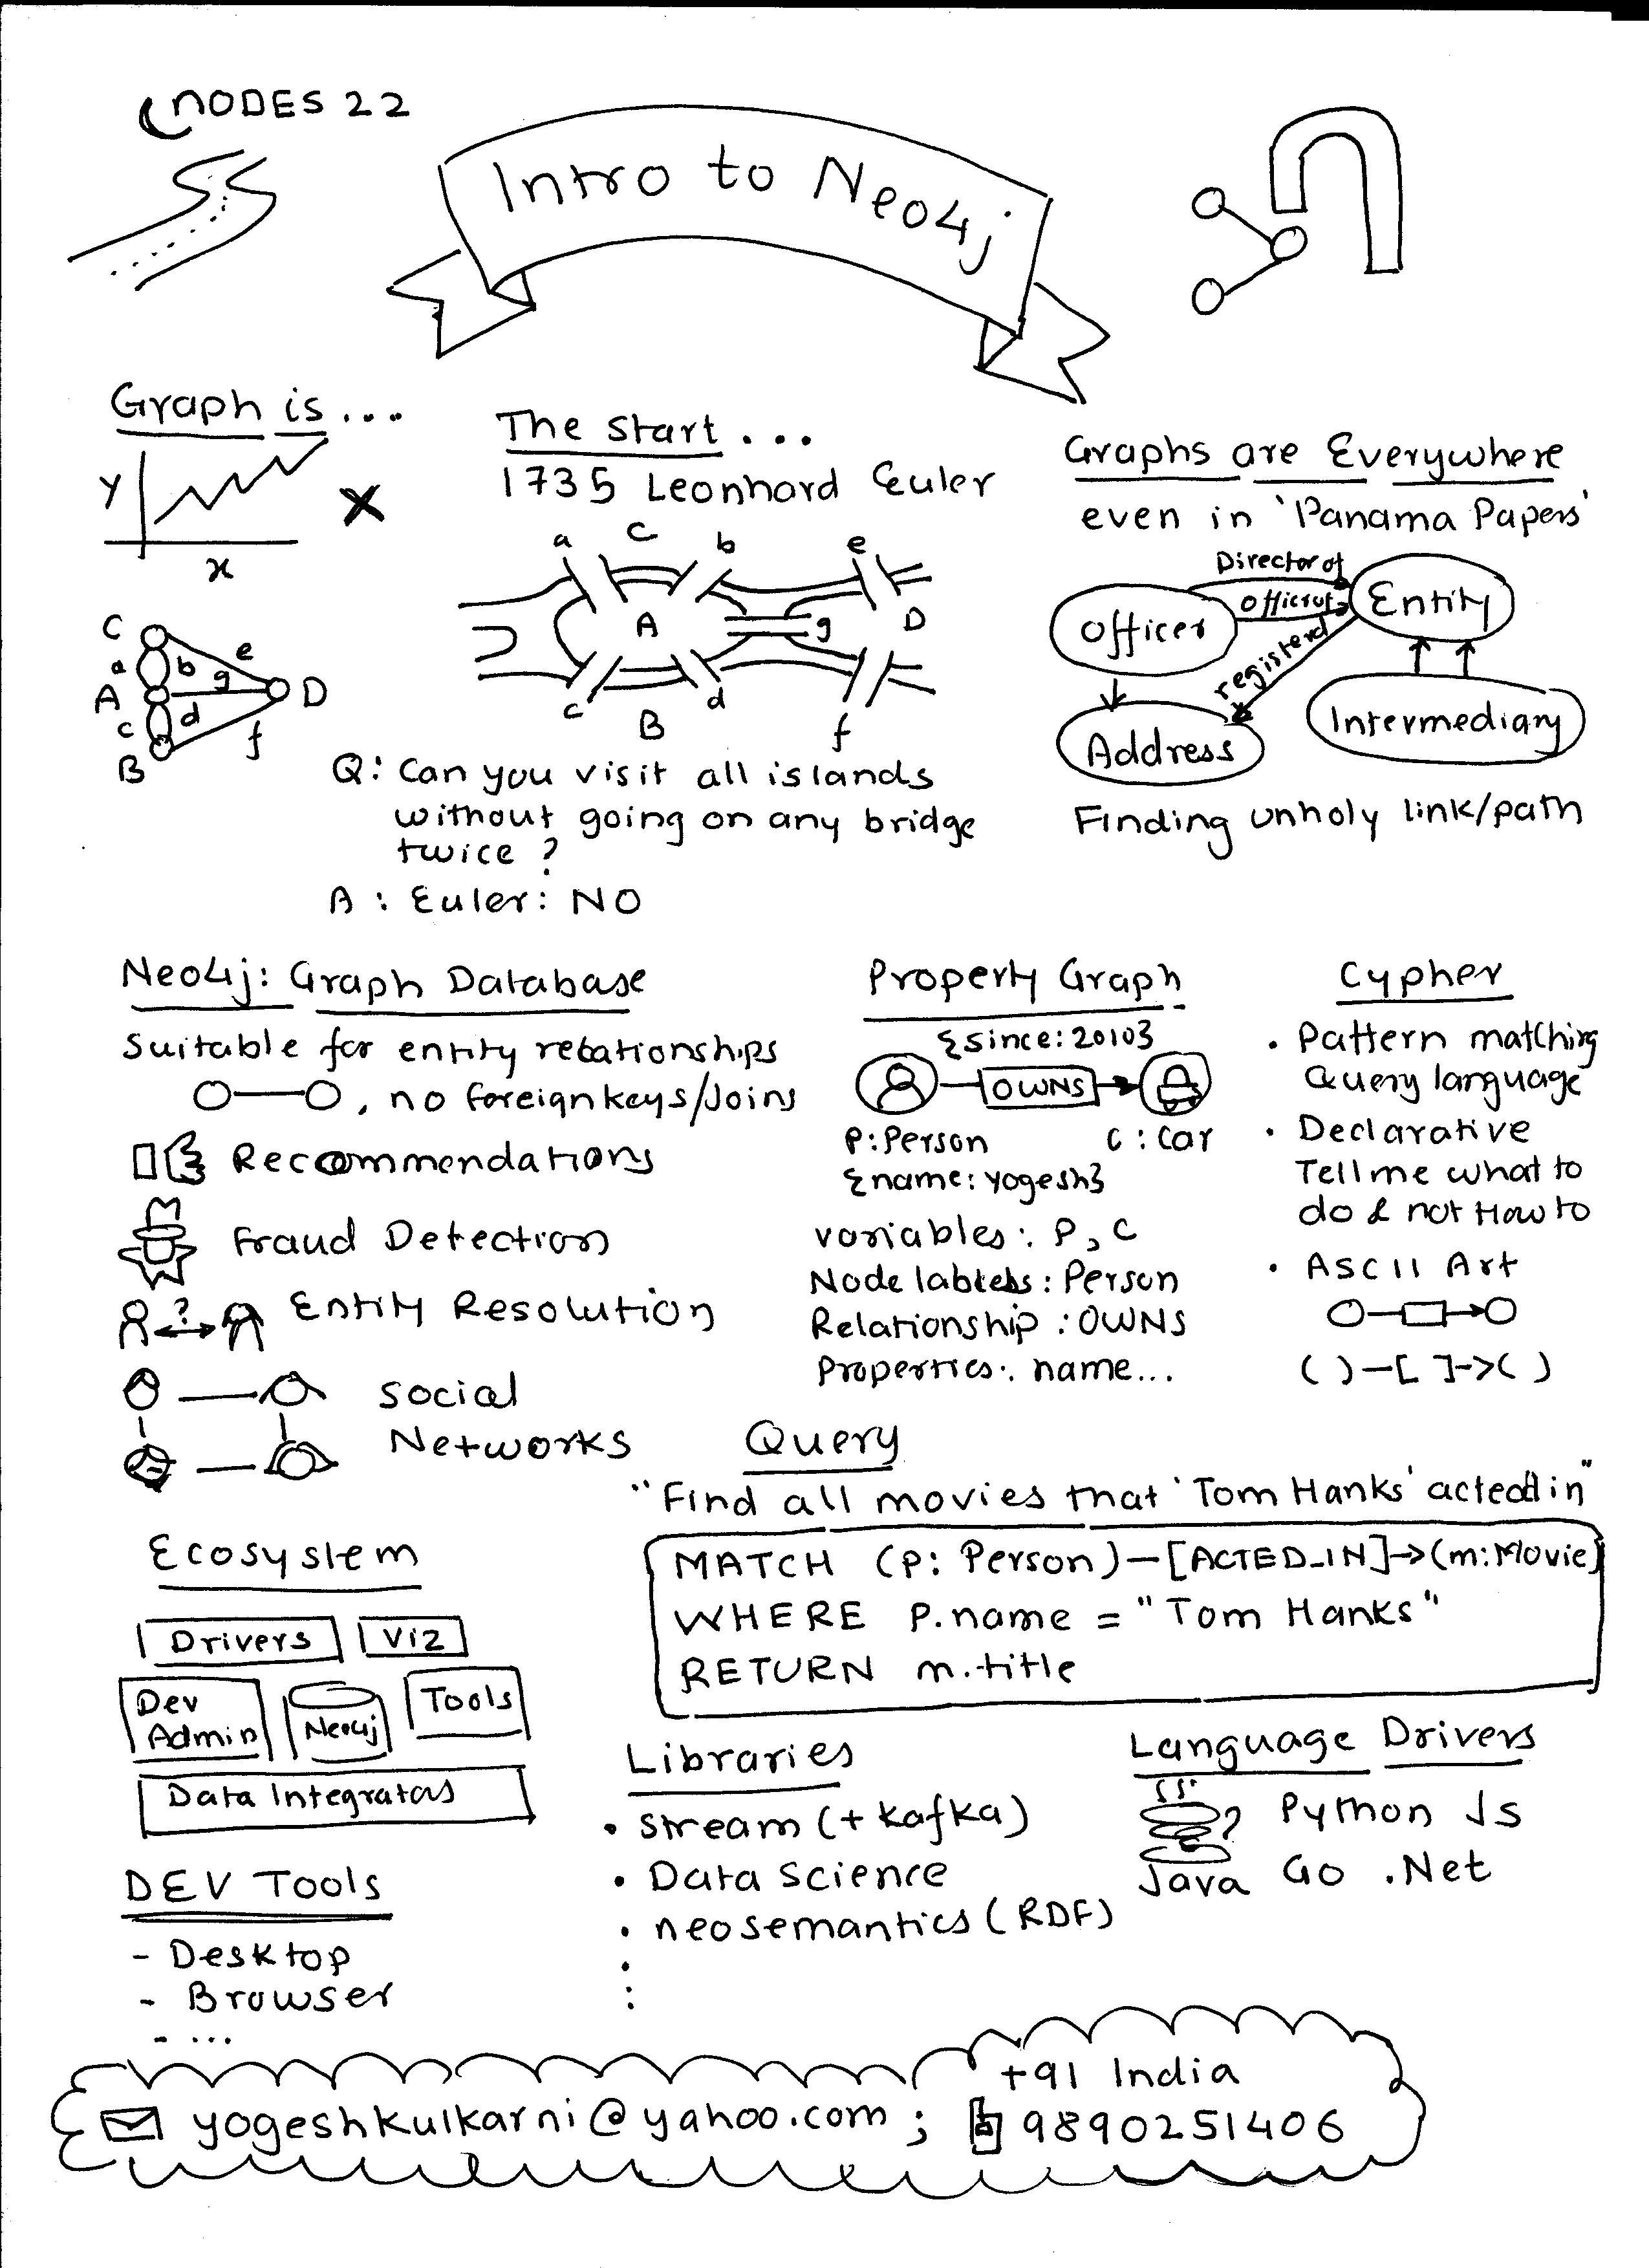 NODES 22
Intro to Neo4j
Graph is...
y
x
C
a b e
g
A D
c d
f
B
The start...
1735 Leonhard Euler
a C b e
A g D
c B d f
Q: Can you visit all islands
without going on any bridge
twice?
A: Euler: NO
Graphs are Everywhere
even in 'Panama Papers'
Director of
Officer
Entity
registerd
Address
Intermediary
Finding unholy link/path
Neo4j: Graph Database
Suitable for entity relationships
, no foreign keys/Joins
Recommendations
Fraud Detection
?
Entity Resolution
social
Networks
Property Graph
{since:2010}
OWNS
P:Person C:Car
{name:yogesh}
variables: P, C
Node labels: Person
Relationship: OWNS
Properties: name...
Cypher
• Pattern matching
Query language
• Declarative
Tell me what to
do & not How to
• ASCII Art
( )-[ ]->( )
Query
"Find all movies that 'Tom Hanks' acted in"
MATCH (P: Person)-[ACTED_IN]->(m:Movie)
WHERE P.name = "Tom Hanks"
RETURN m.title
Ecosystem
Drivers Viz
Dev
Admin
Neo4j
Tools
Data Integrators
DEV Tools
- Desktop
- Browser
- ...
Libraries
• Stream (+ Kafka)
• Data Science
• neosemantics (RDF)
Language Drivers
Java
Python Js
Go .Net
yogeshkulkarni@yahoo.com;
+91 India
9890251406